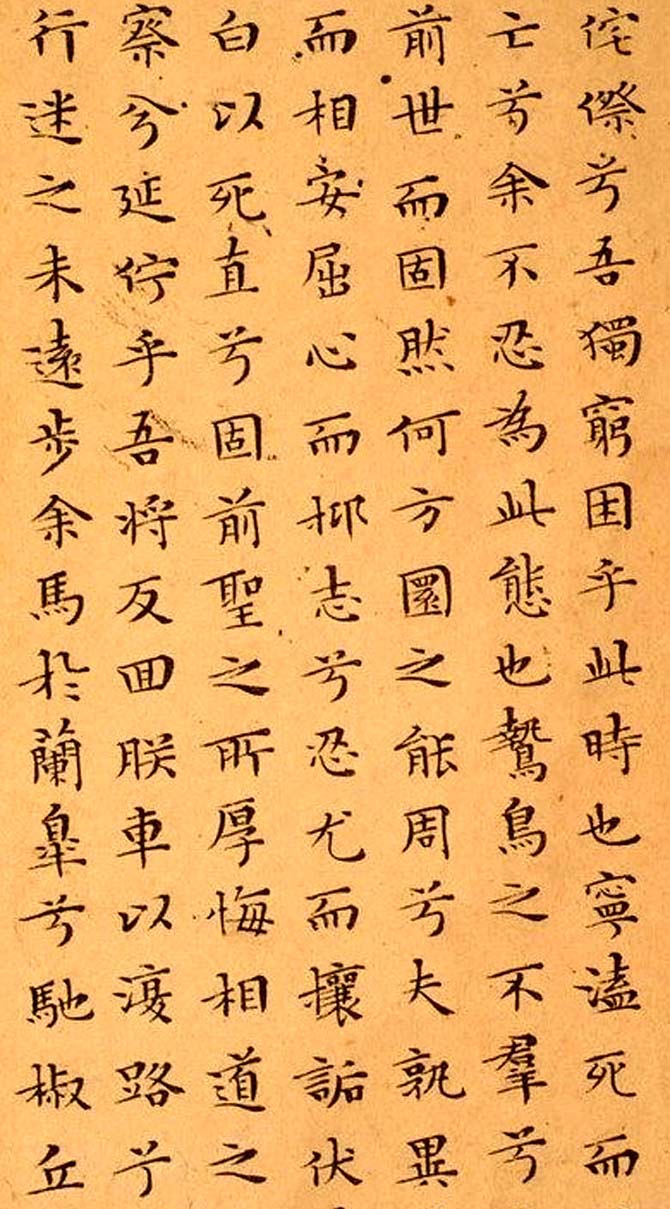 侘傺兮吾獨窮困乎此時也寧溘死而
亡兮余不忍為此態也鷙鳥之不羣兮
前世而固然何方圜之能周兮夫孰異
而相安屈心而抑志兮忍尤而攘詬伏
白以死直兮固前聖之所厚悔相道之
察兮延佇乎吾将反囬朕車以復路兮
行迷之未遠步余馬於蘭皐兮馳椒丘